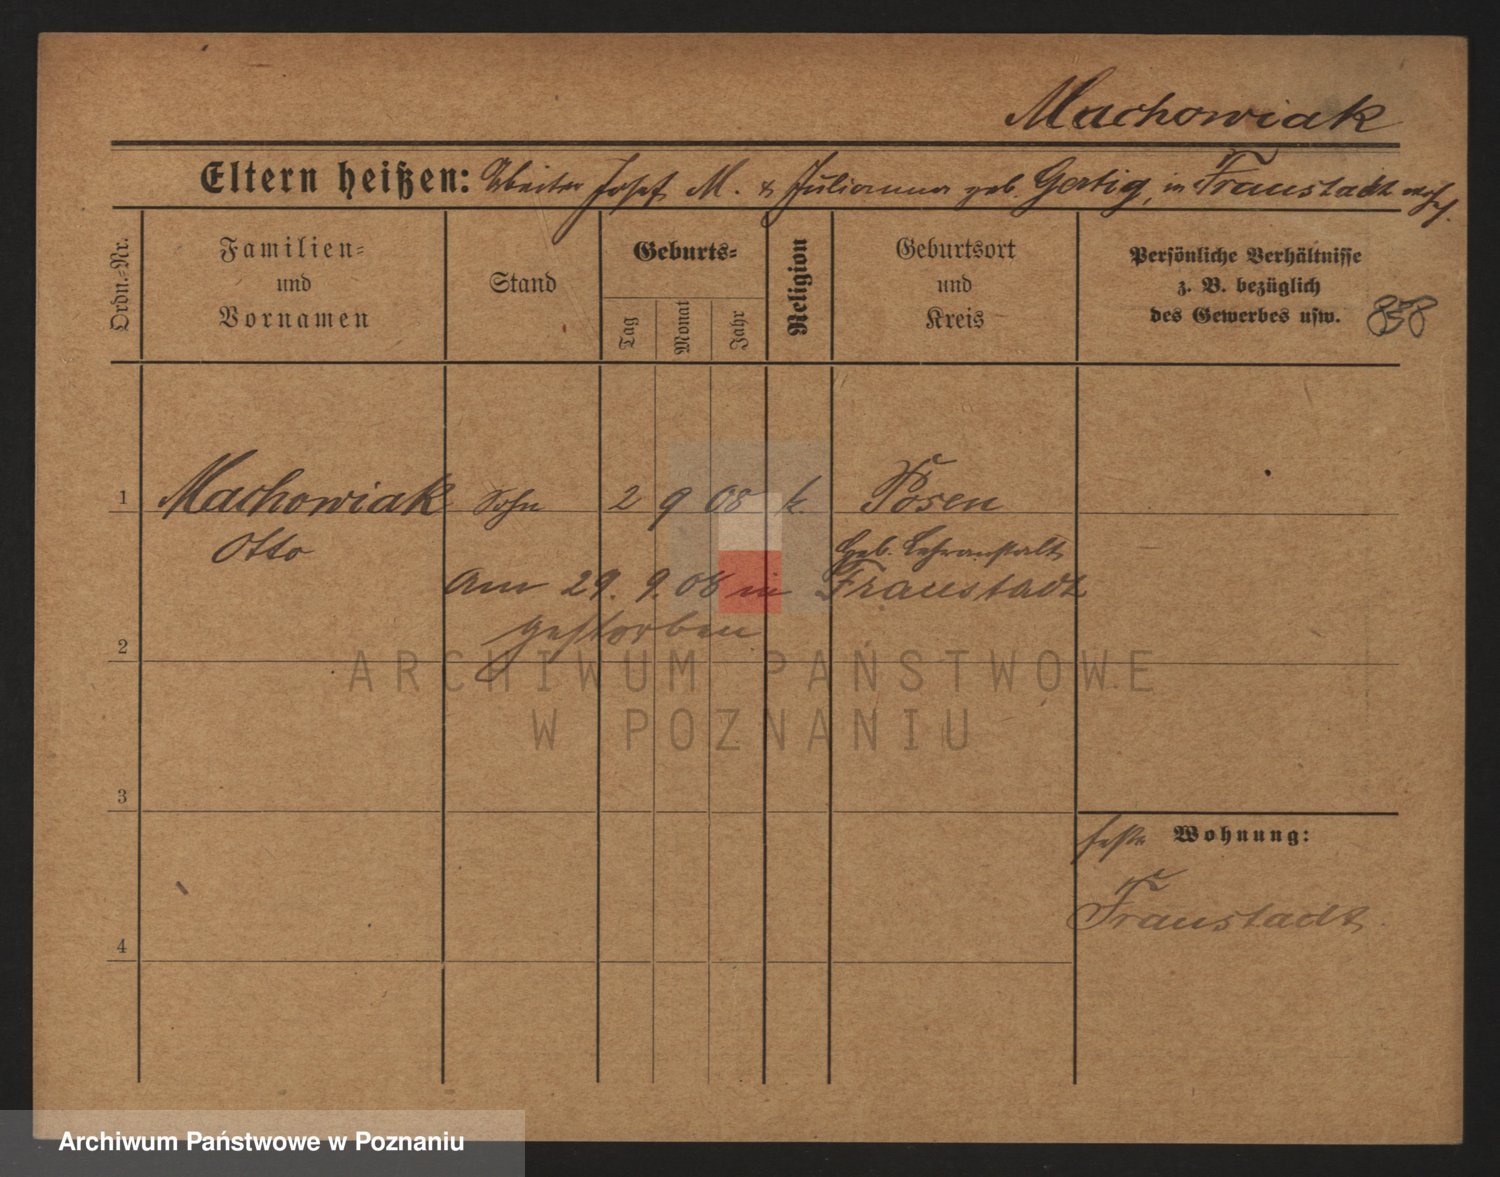 Machowiak
Eltern heißen: Arbeiter Josef M. & Julianna geb. Gertig, in Fraustadt wohnh.
Ordn.-Nr.
Familien-
und
Vornamen
Stand
Geburts-
Tag
Monat
Jahr
Religion
Geburtsort
und
Kreis
Persönliche Verhältnisse
z. B. bezüglich
des Gewerbes usw.
858
1 Machowiak Sohn 2 9 08 k. Posen
Otto Geb. Lehranstalt
Am 29. 9. 08 in Fraustadt
gestorben
2
3
4
feste Wohnung:
Fraustadt
ARCHIWUM PAŃSTWOWE
W POZNANIU
Archiwum Państwowe w Poznaniu